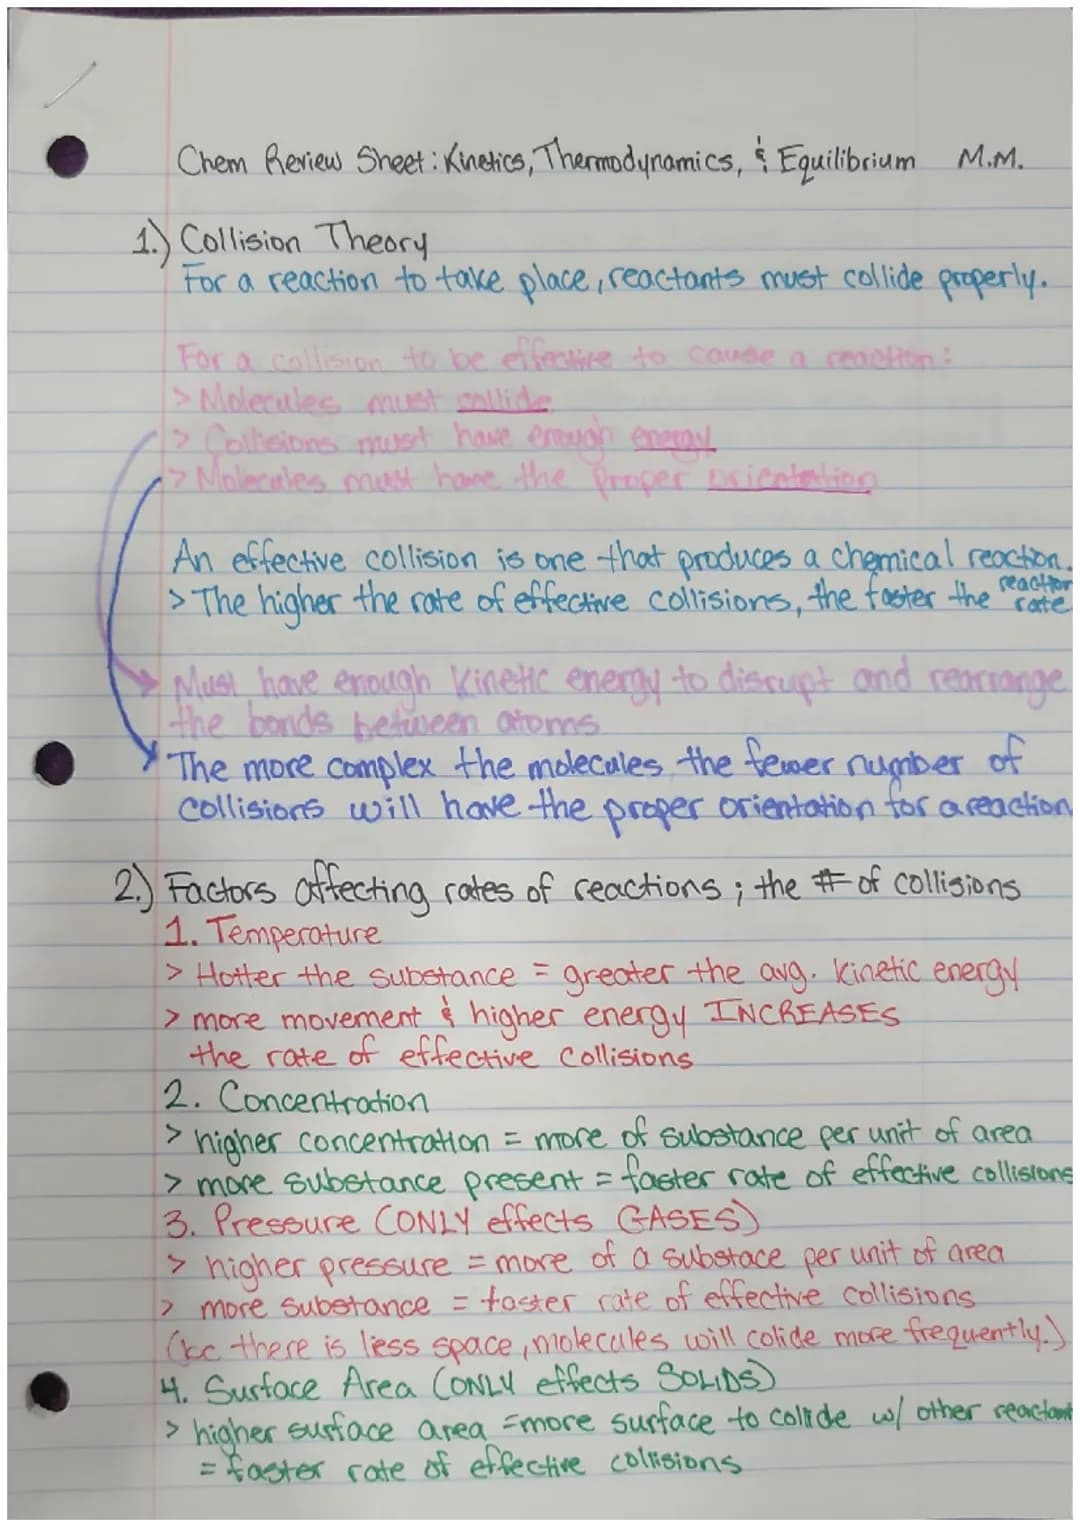 Chem Review Sheet: Kinetics, Thermodynamics, & Equilibrium M.M.
1.) Collision Theory
For a reaction to take place, reactants must collide properly.
For a collision to be effective to cause a reaction:
> Molecules must collide
> Collisions must have enough energy
> Molecules must have the proper orientation
An effective collision is one that produces a chemical reaction.
> The higher the rate of effective collisions, the faster the reaction rate
Must have enough kinetic energy to disrupt and rearrange
the bonds between atoms
The more complex the molecules, the fewer number of
collisions will have the proper orientation for a reaction
2.) Factors affecting rates of reactions; the # of collisions
1. Temperature
> Hotter the substance = greater the avg. kinetic energy
> more movement & higher energy INCREASES
the rate of effective collisions
2. Concentration
> higher concentration = more of substance per unit of area
> more substance present = faster rate of effective collisions
3. Pressure (ONLY effects GASES)
> higher pressure = more of a substace per unit of area
> more substance = faster rate of effective collisions
(bc there is less space, molecules will colide more frequently.)
4. Surface Area (ONLY effects SOLIDS)
> higher surface area = more surface to collide w/ other reactant
= faster rate of effective collisions